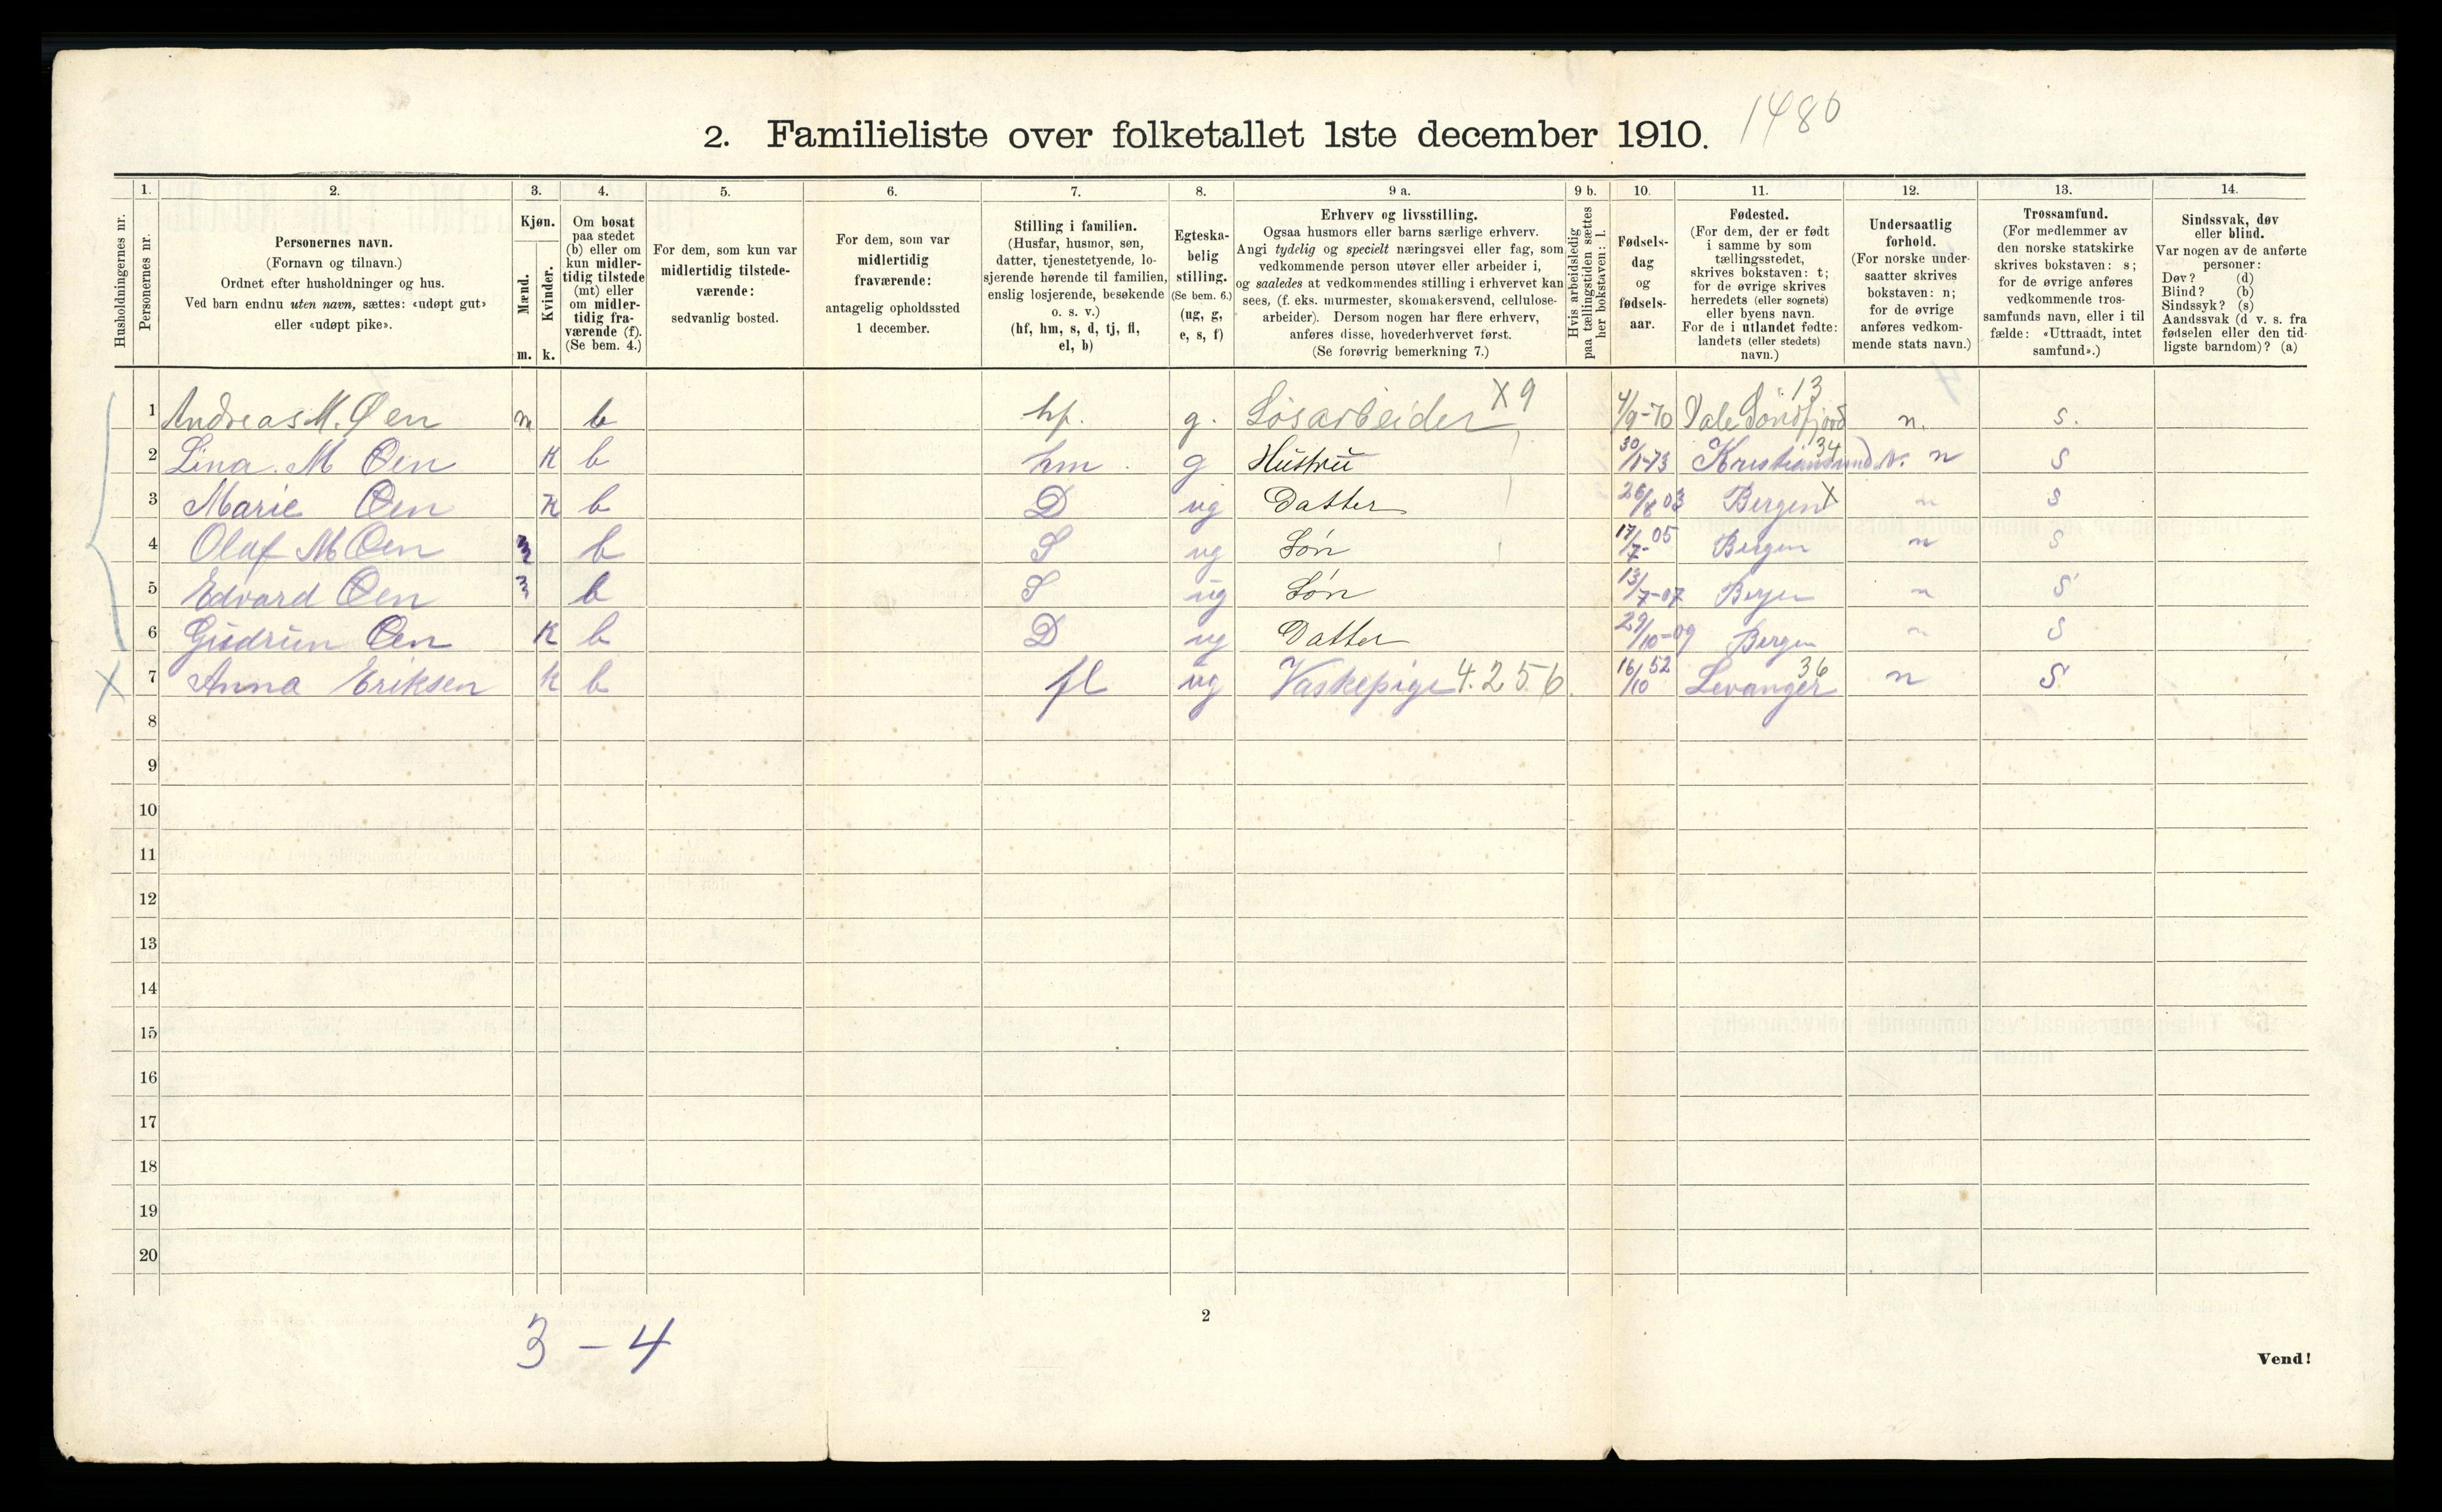 1480
2. Familieliste over folketallet 1ste december 1910.
Husholdningernes nr.
1.
Personernes nr.
2.
Personernes navn.
(Fornavn og tilnavn.)
Ordnet efter husholdninger og hus.
Ved barn endnu uten navn, sættes: «udøpt gut»
eller «udøpt pike».
3.
Kjøn.
Mænd.
Kvinder.
m. k.
4.
Om bosat
paa stedet
(b) eller om
kun midler-
tidig tilstede
(mt) eller
om midler-
tidig fra-
værende (f).
(Se bem. 4.)
5.
For dem, som kun var
midlertidig tilstede-
værende:
sedvanlig bosted.
6.
For dem, som var
midlertidig
fraværende:
antagelig opholdssted
1 december.
7.
Stilling i familien.
(Husfar, husmor, søn,
datter, tjenestetyende, lo-
sjerende hørende til familien,
enslig losjerende, besøkende
o. s. v.)
(hf, hm, s, d, tj, fl,
el, b)
8.
Egteska-
belig
stilling.
(Se bem. 6.)
(ug, g,
e, s, f)
9 a.
Erhverv og livsstilling.
Ogsaa husmors eller barns særlige erhverv.
Angi tydelig og specielt næringsvei eller fag, som
vedkommende person utøver eller arbeider i,
og saaledes at vedkommendes stilling i erhvervet kan
sees, (f. eks. murmester, skomakersvend, cellulose-
arbeider). Dersom nogen har flere erhverv,
anføres disse, hovederhvervet først.
(Se forøvrig bemerkning 7.)
9 b.
Hvis arbeidsledig
paa tællingstiden sættes
her bokstaven: l.
10.
Fødsels-
dag
og
fødsels-
aar.
11.
Fødested.
(For dem, der er født
i samme by som
tællingsstedet,
skrives bokstaven: t;
for de øvrige skrives
herredets (eller sognets)
eller byens navn.
For de i utlandet fødte:
landets (eller stedets)
navn.)
12.
Undersaatlig
forhold.
(For norske under-
saatter skrives
bokstaven: n;
for de øvrige
anføres vedkom-
mende stats navn.)
13.
Trossamfund.
(For medlemmer av
den norske statskirke
skrives bokstaven: s;
for de øvrige anføres
vedkommende tros-
samfunds navn, eller i til
fælde: «Uttraadt, intet
samfund».)
14.
Sindssvak, døv
eller blind.
Var nogen av de anførte
personer:
Døv? (d)
Blind? (b)
Sindssyk? (s)
Aandssvak (d v. s. fra
fødselen eller den tid-
ligste barndom)? (a)
1 Andreas M. Øen m b hf. g. Løsarbeider X9 4/9-70 Dale Söndfjord 13 n. s.
2 Lina. M Øen K b hm. g Hustru 30/ -73 Kristiansund N. 34 n s
3 Marie Øen K b D ug Datter 26/8 03 Bergen X n s
4 Olaf M Øen m b S ug Søn 17/7-05 Bergen n s
5 Edvard Øen m b S ug Søn 13/7-07 Bergen n s
6 Gudrun Øen K b D ug Datter 29/10-09 Bergen n s
X 7 Anna Eriksen K b fl ug Vaskepige 4.256. 16/10 52 Levanger 36 n s
8
9
10
11
12
13
14
15
16
17
18
19
20
2
3 - 4
Vend!